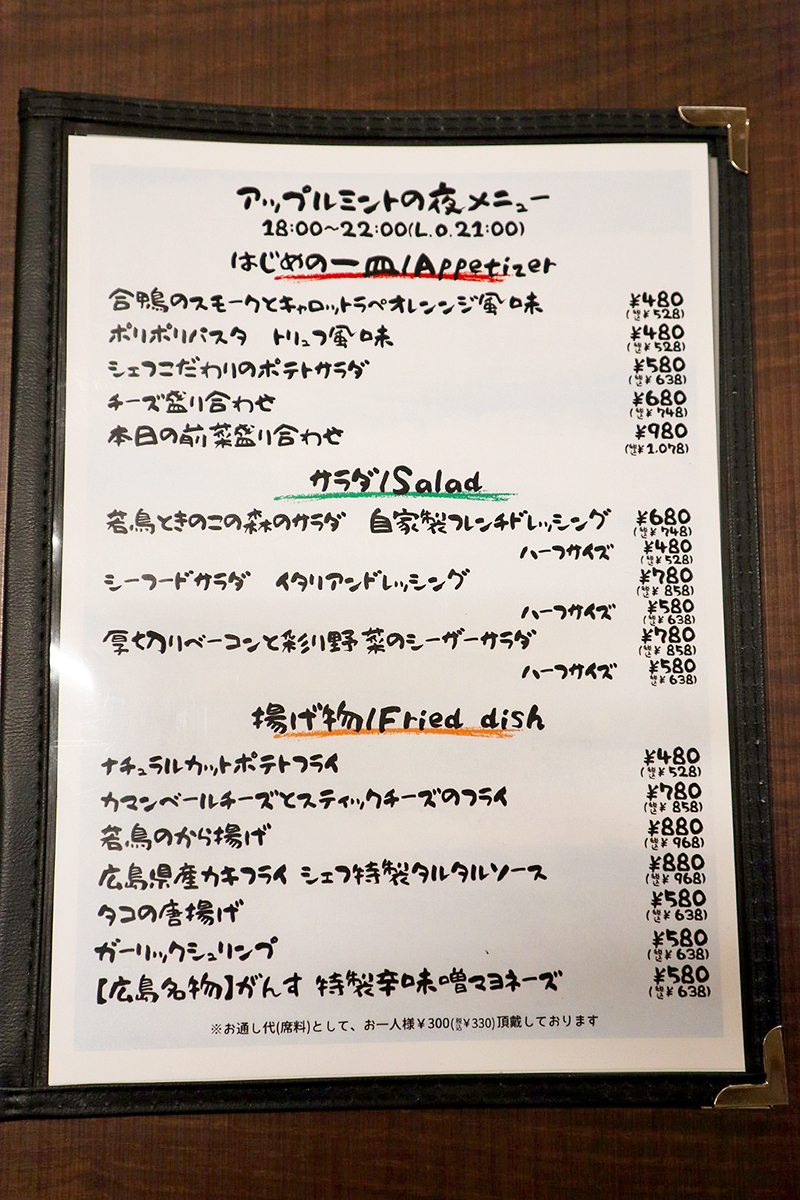 アップルミントの夜メニュー
18:00~22:00(L.O.21:00)
はじめの一皿/Appetizer
合鴨のスモークとキャロットラペオレンンジ風味 ¥480
(税込¥528)
ポリポリパスタ トリュフ風味 ¥480
(税込¥528)
シェフこだわりのポテトサラダ ¥580
(税込¥638)
チーズ盛り合わせ ¥680
(税込¥748)
本日の前菜盛り合わせ ¥980
(税込¥1.078)
サラダ/Salad
若鳥ときのこの森のサラダ 自家製フレンチドレッシング ¥680
(税込¥748)
ハーフサイズ ¥480
(税込¥528)
シーフードサラダ イタリアンドレッシング ¥780
(税込¥858)
ハーフサイズ ¥580
(税込¥638)
厚切りベーコンと彩り野菜のシーザーサラダ ¥780
(税込¥858)
ハーフサイズ ¥580
(税込¥638)
揚げ物/Fried dish
ナチュラルカットポテトフライ ¥480
(税込¥528)
カマンベールチーズとスティックチーズのフライ ¥780
(税込¥858)
若鳥のから揚げ ¥880
(税込¥968)
広島県産カキフライ シェフ特製タルタルソース ¥880
(税込¥968)
タコの唐揚げ ¥580
(税込¥638)
ガーリックシュリンプ ¥580
(税込¥638)
【広島名物】がんす 特製辛味噌マヨネーズ ¥580
(税込¥638)
※お通し代(席料)として、お一人様¥300(税込¥330)頂戴しております